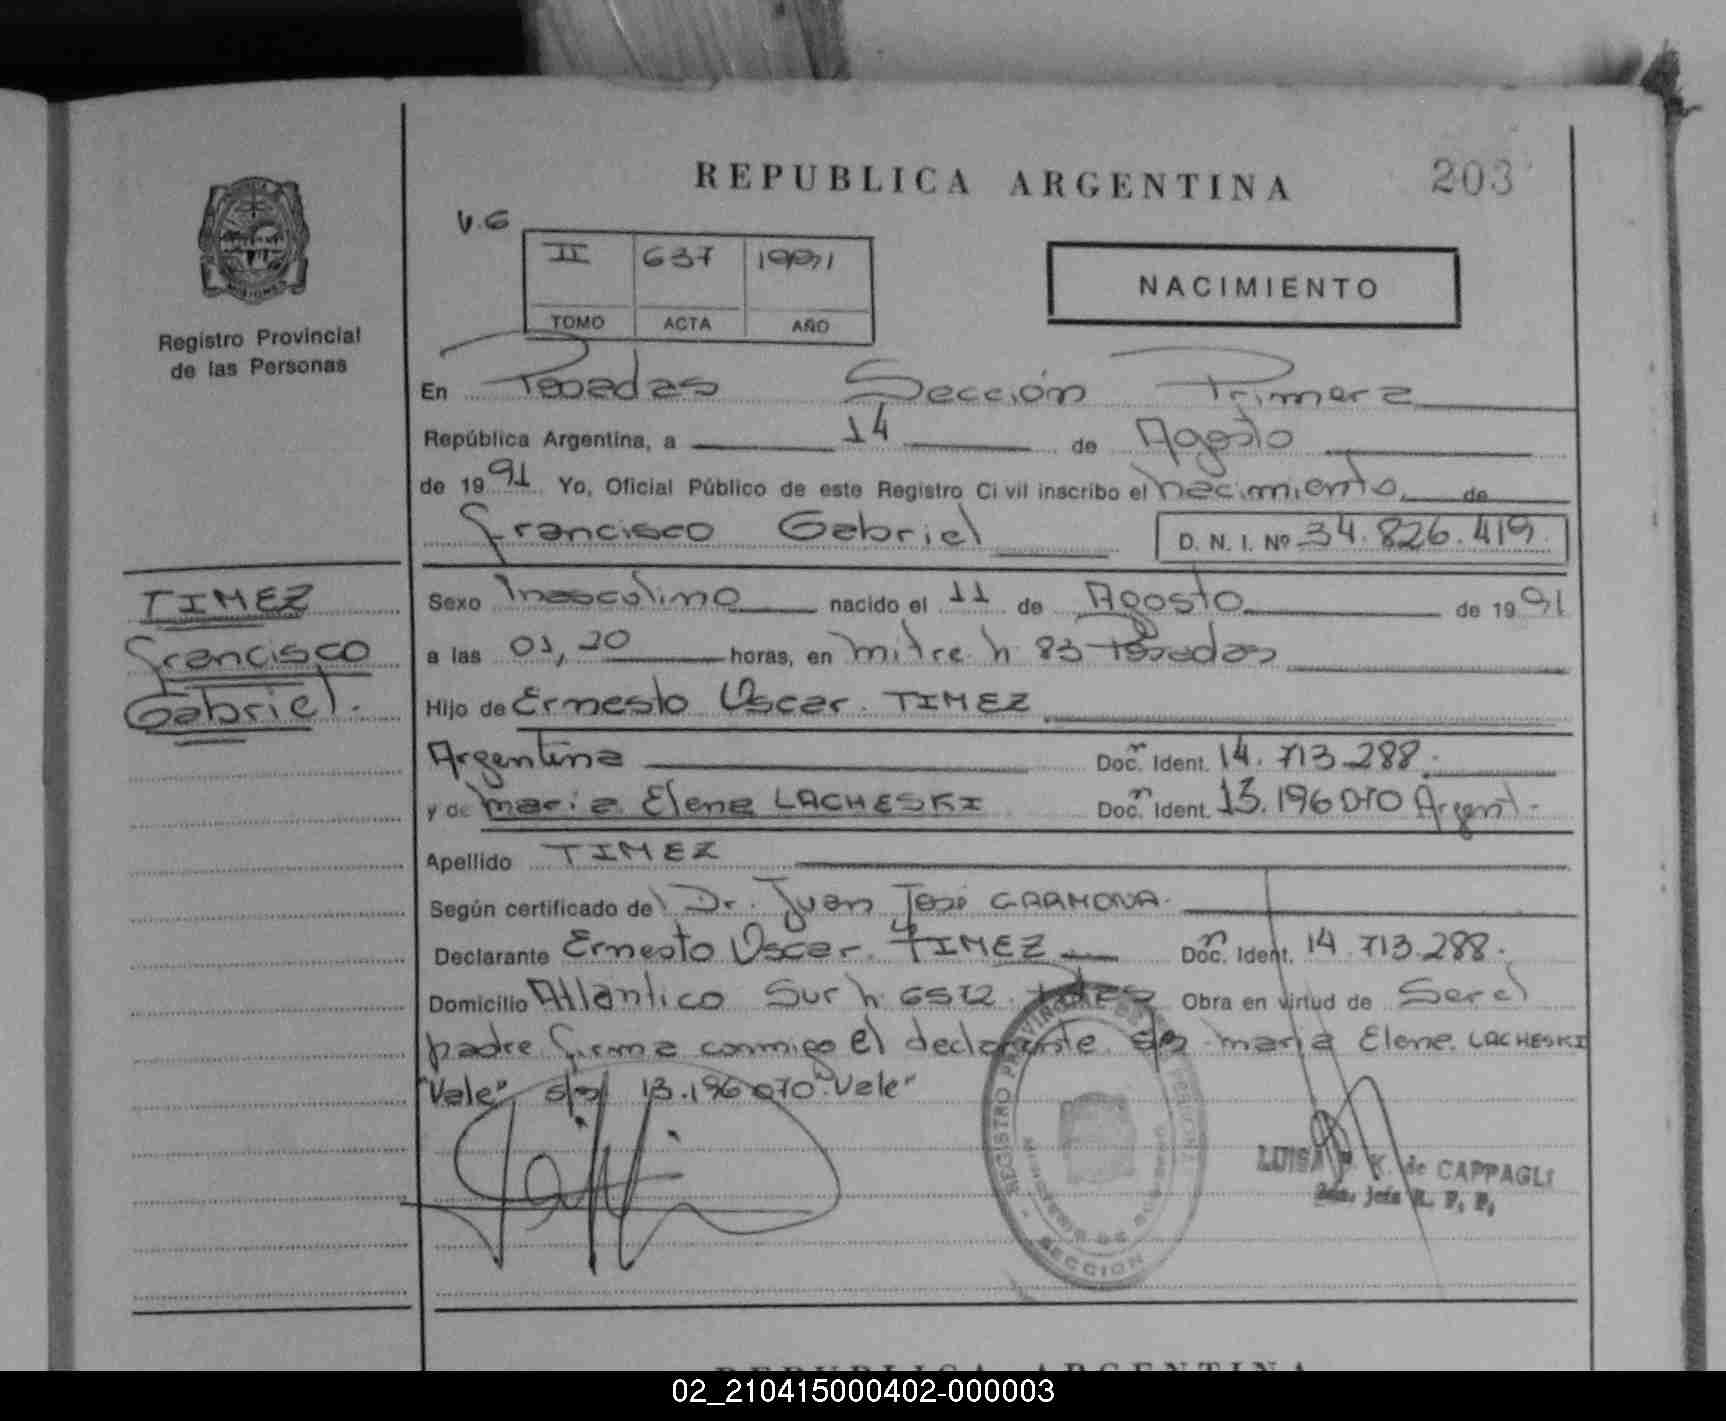 REPUBLICA ARGENTINA
203
V.G
II 637 1991
TOMO ACTA AÑO
NACIMIENTO
MISIONES
Registro Provincial
de las Personas
En Posadas Sección Primera
República Argentina, a 14 de Agosto
de 1991 Yo, Oficial Público de este Registro Civil inscribo el nacimiento de
Francisco Gabriel D. N. I. Nº 34.826.419
TIMEZ
Francisco
Gabriel.
Sexo masculino nacido el 11 de Agosto de 1991
a las 01,20 horas, en mitre n 83 Posadas
Hijo de Ernesto Oscar TIMEZ
Argentina Doc. Ident. 14.713.288.
y de maria Elena LACHESKI Doc. Ident. 13.196070 Argent.
Apellido TIMEZ
Según certificado del Dr. Juan José CARMONA.
Declarante Ernesto Oscar TIMEZ Doc. Ident. 14.713.288.
Domicilio Atlántico Sur n 6572 Obra en virtud de Ser el
padre firma conmigo el declarante. maria Elena LACHESKI
"Vale" s/r 13.196070 "Vale"
REGISTRO PROVINCIAL DE LAS PERSONAS
SECCION
LUISA K. de CAPPAGLI
Jefa R. P. P.
REPUBLICA ARGENTINA
02_210415000402-000003